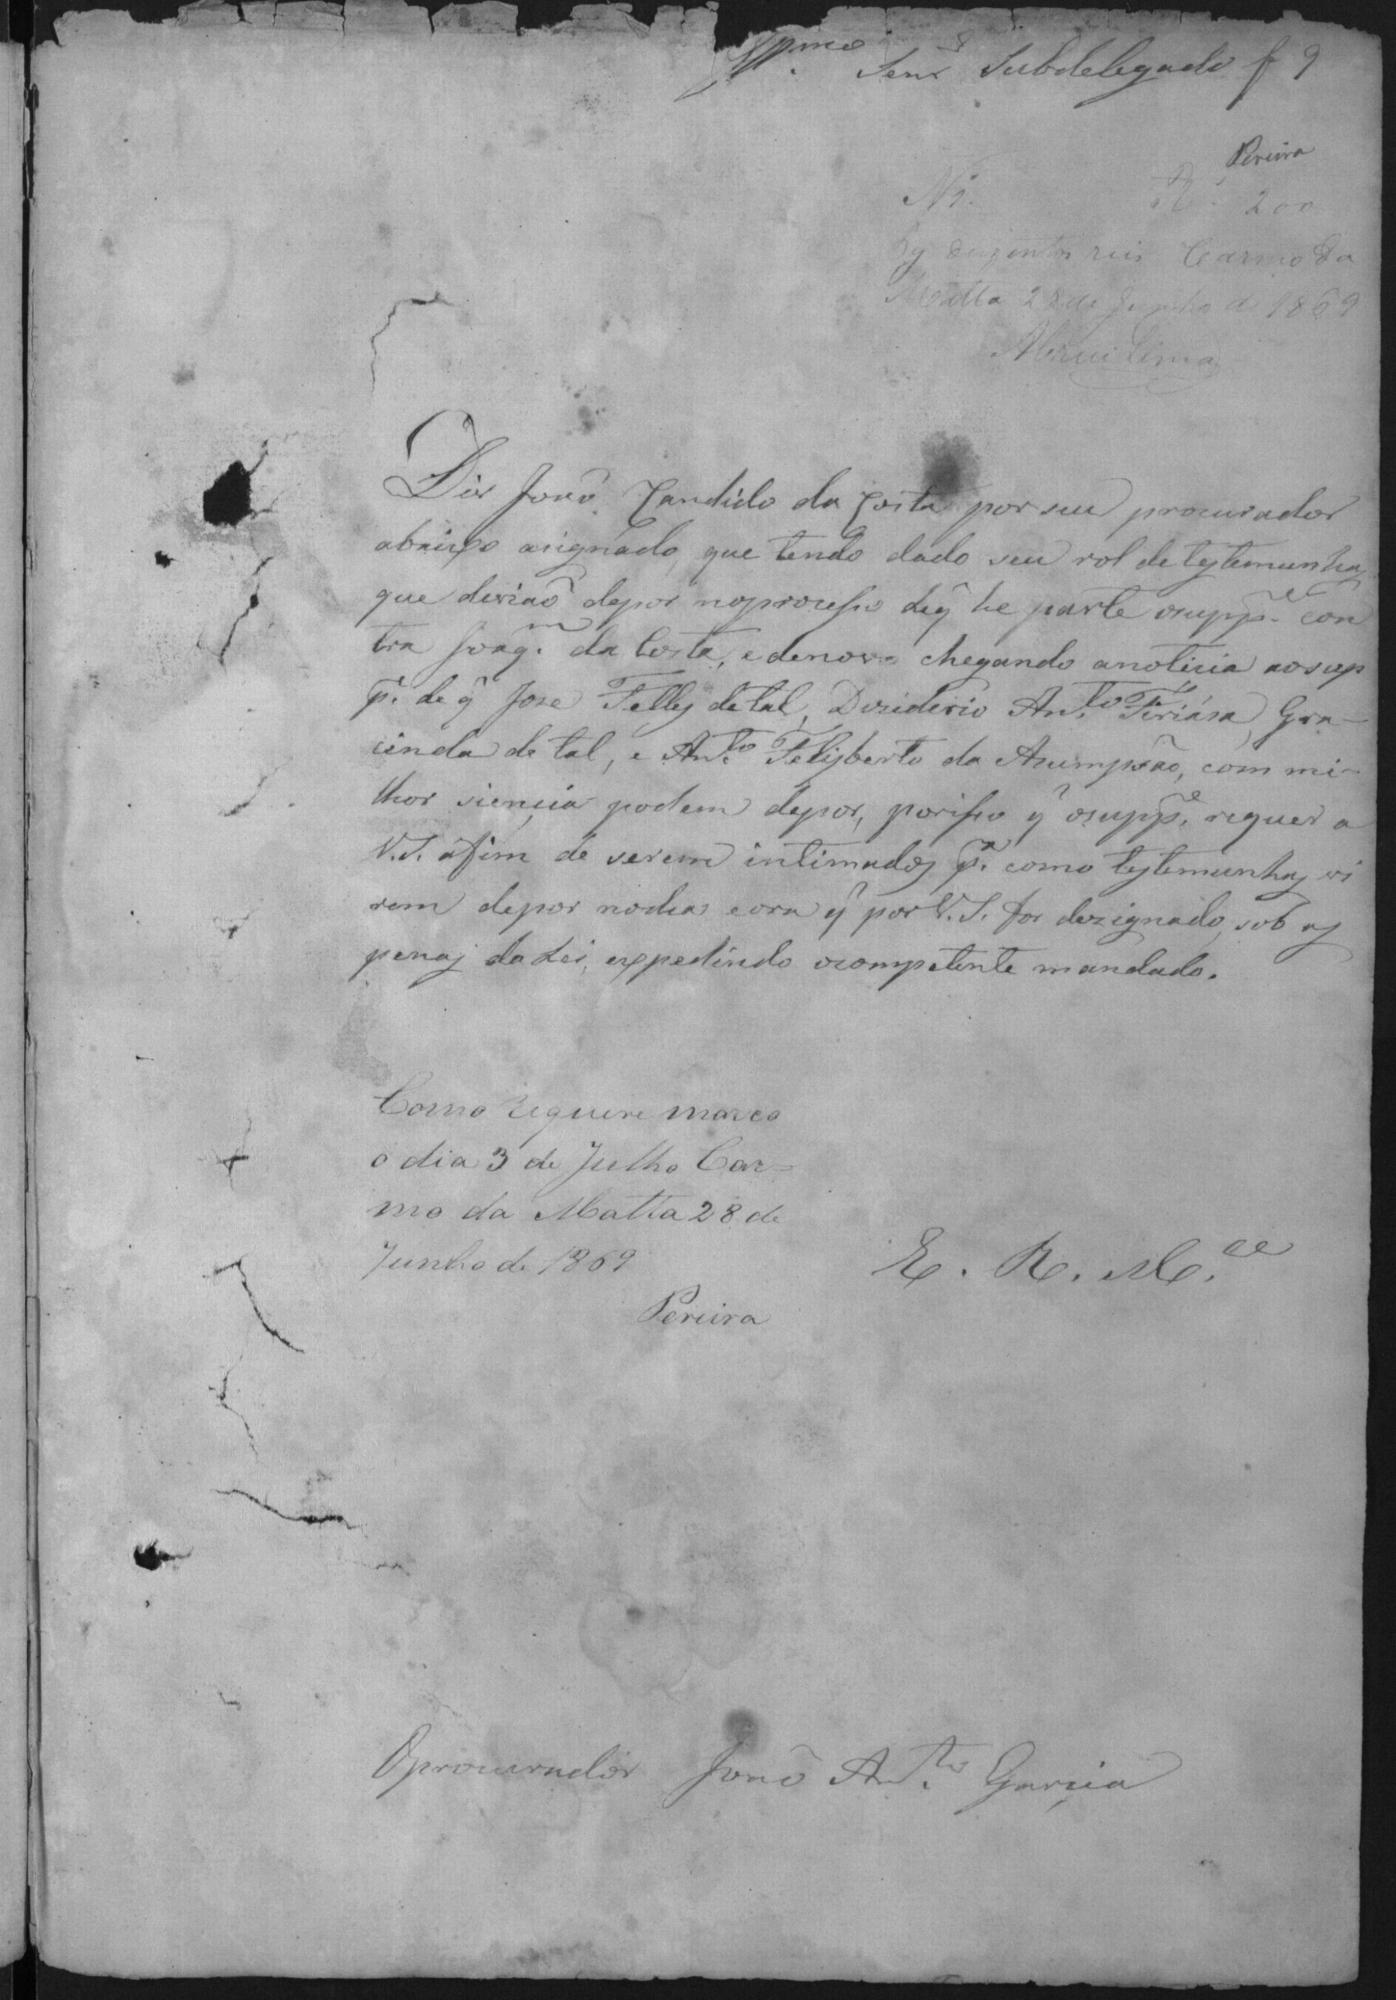 Illmo. Senr. Subdelegado f 9
Pereira
N 1. Rs. 200
Pg duzentos reis Carmo da
Matta 28 de Junho de 1869
Diz Joaõ Candido da Costa por seu procurador
abaixo asignado, que tendo dado seu rol de testemunhas
que deviaõ depor no processo de q̃ he parte o suppe. con
tra Joaqm. da Costa, e de novo chegando a noticia ao sup
pe. de q̃ Jose Telles de tal, Deziderio Anto. , Gra-
cinda de tal, e Anto. Felisberto da Asumpsão, com mi-
lhor siencia podem depor, por isso q̃ o suppe. requer a
V.S. afim de serem intimados pa. como testemunhas vi
rem depor no dia e ora q̃ por V.S. for dezignado, sob as
penas da Lei, expedindo o competente mandado.
Como requere marco
o dia 3 de Julho Car=
mo da Matta 28 de
Junho de 1869
Pereira
E. R. Mce.
O procurador Joaõ Anto. Garcia